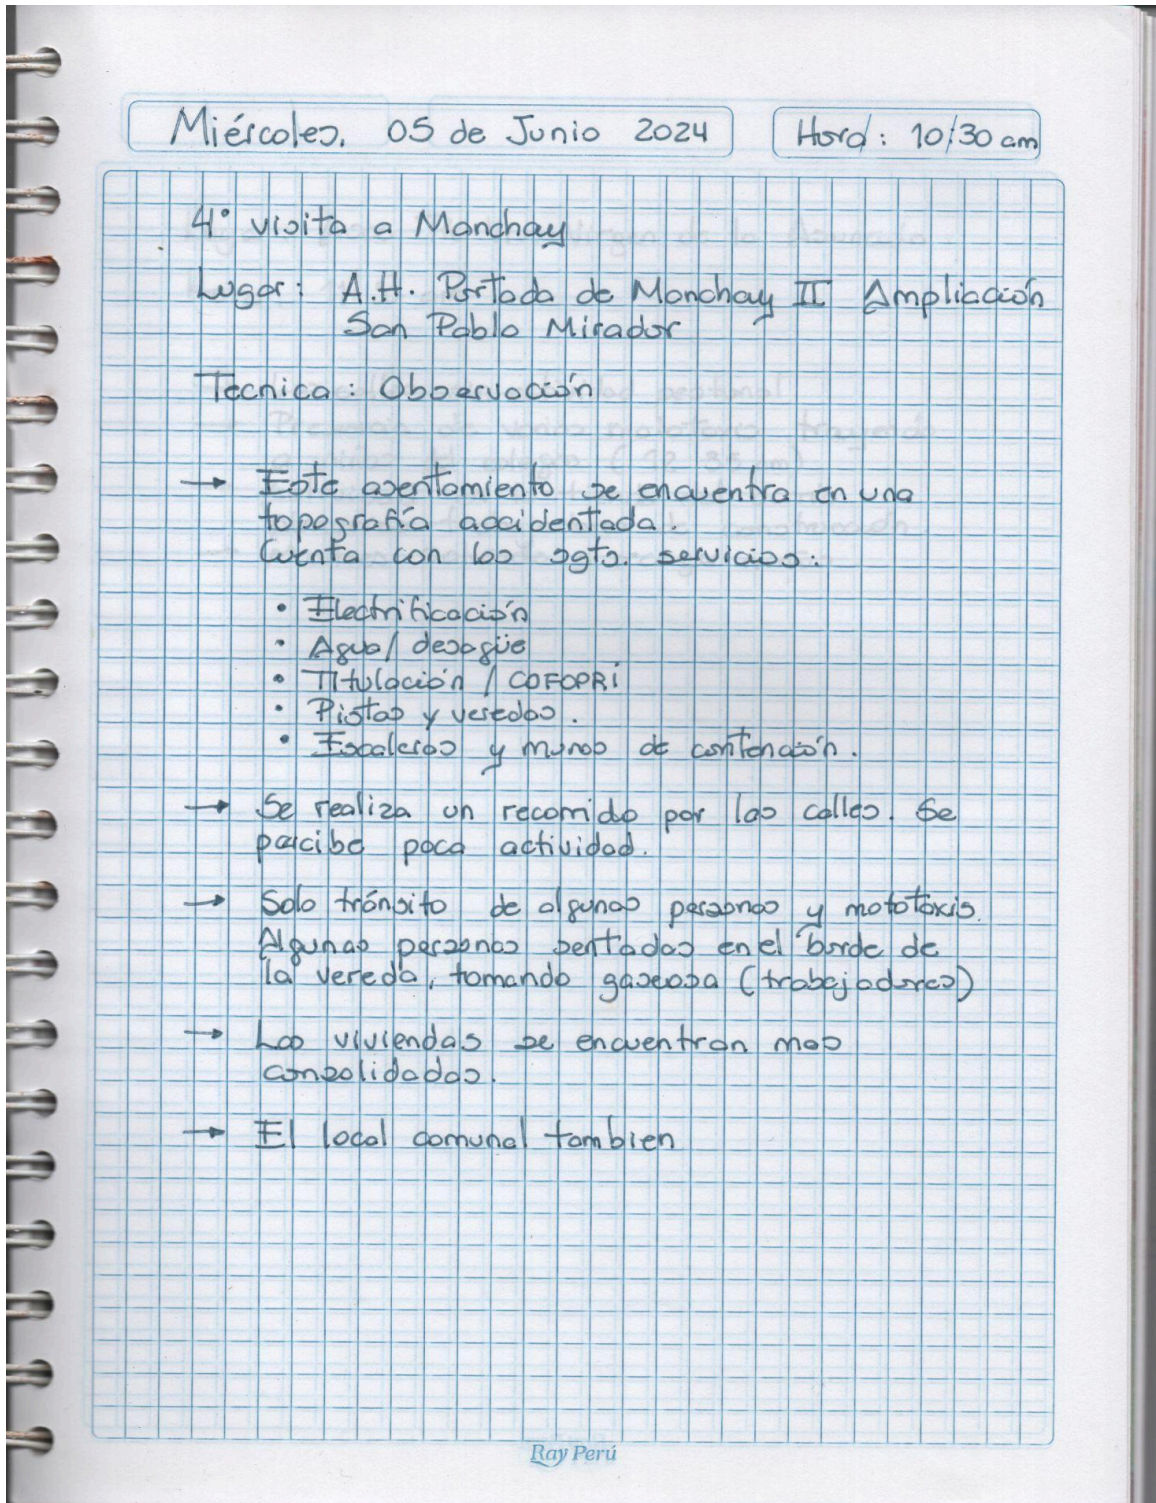 Miércoles, 05 de Junio 2024
Hora: 10:30 am
4° visita a Manchay
Lugar: A.H. Portada de Manchay II Ampliación
San Pablo Mirador
Tecnica: Observación
→ Este asentamiento se encuentra en una
topografía accidentada.
Cuenta con los sgts. servicios:
• Electrificación
• Agua/ desagüe
• Titulación / COFOPRI
• Pistas y veredas.
• Escaleras y muros de contención.
→ Se realiza un recorrido por las calles. Se
percibe poca actividad.
→ Solo tránsito de algunas personas y mototaxis.
Algunas personas sentadas en el borde de
la vereda, tomando gaseosa (trabajadores)
→ Las viviendas se encuentran mas
consolidadas.
→ El local comunal tambien
Ray Perú